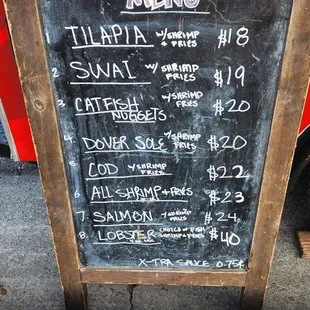 MENU
TILAPIA W/SHRIMP & FRIES $18
2 SWAI W/SHRIMP FRIES $19
3 CATFISH NUGGETS W/SHRIMP FRIES $20
4 DOVER SOLE W/SHRIMP FRIES $20
5 COD W/SHRIMP FRIES $22
6 ALL SHRIMP + FRIES $23
7 SALMON FRIES $24
8 LOBSTER CHOICE OF FISH SHRIMP & FRIES $40
X-TRA SAUCE 0.75¢